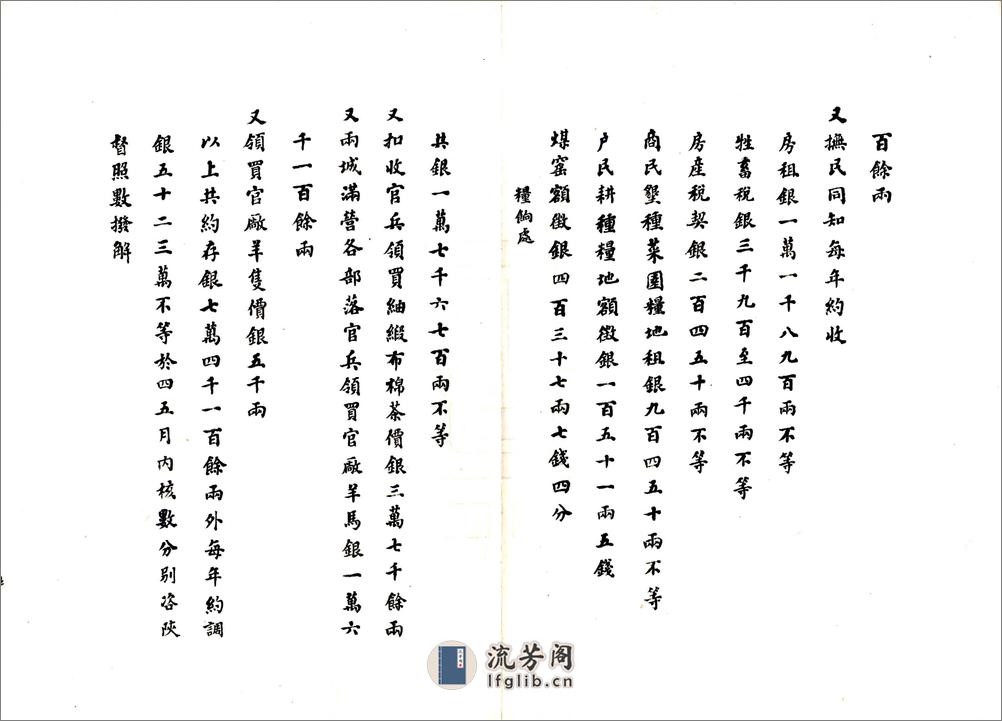 百餘兩
又撫民同知每年約收
房租銀一萬一千八九百兩不等
牲畜稅銀三千九百至四千兩不等
房產稅契銀二百四五十兩不等
商民墾種菜園糧地租銀九百四五十兩不等
戶民耕種糧地額徵銀一百五十一兩五錢
煤窰額徵銀四百三十七兩七錢四分
糧餉處
共銀一萬七千六七百兩不等
又扣收官兵領買紬緞布棉茶價銀三萬七千餘兩
又兩城滿營各部落官兵領買官廠羊馬銀一萬六
千一百餘兩
又領買官廠羊隻價銀五千兩
以上共約存銀七萬四千一百餘兩外每年約調
銀五十二三萬不等於四五月內核數分別咨陝
督照數撥解
流芳阁
lfglib.cn